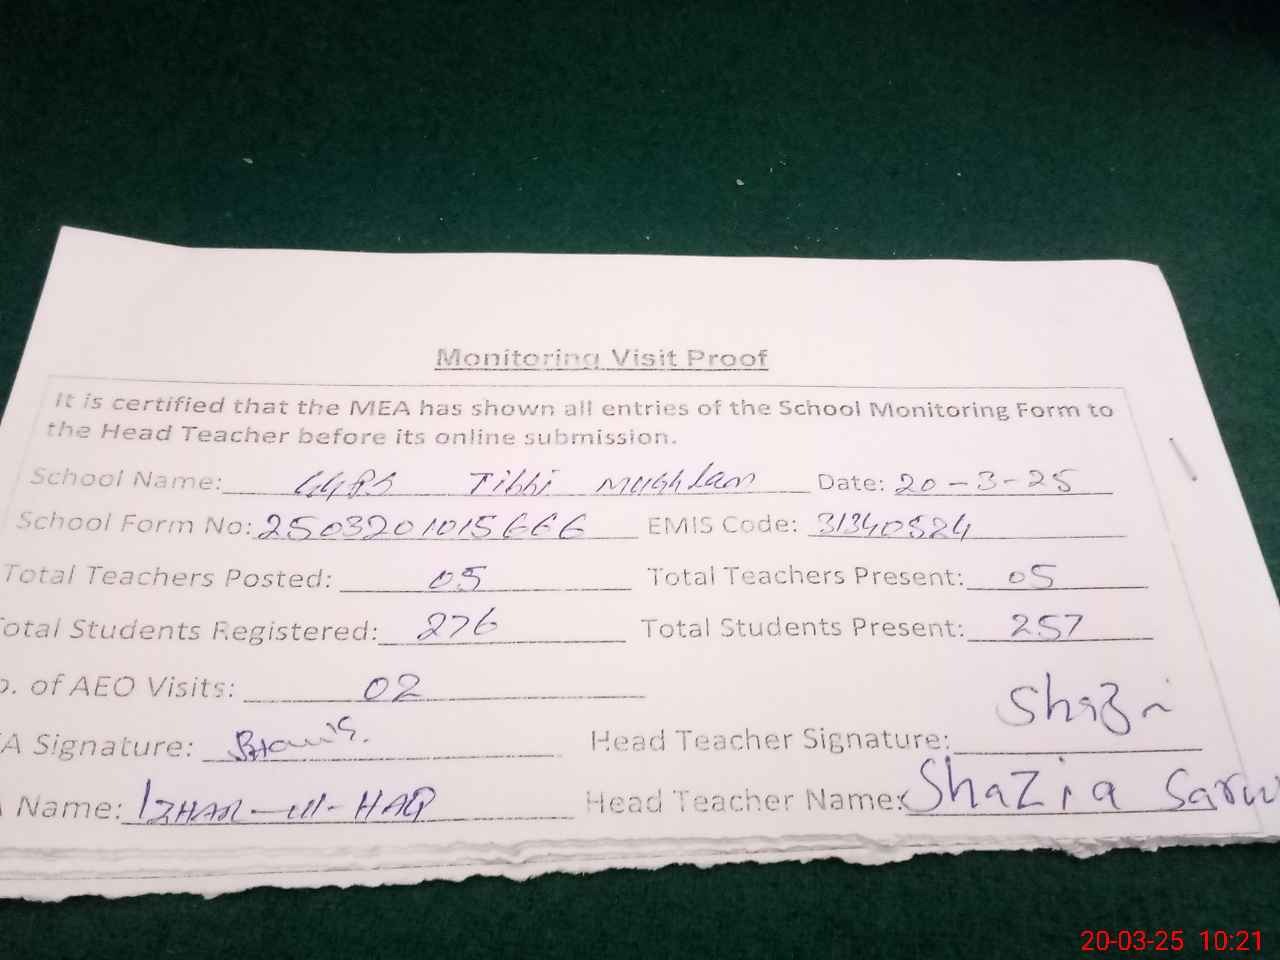 Monitoring Visit Proof
It is certified that the MEA has shown all entries of the School Monitoring Form to
the Head Teacher before its online submission.
School Name: GGPS Tibbi Mughlan Date: 20-3-25
School Form No: 2503201015666 EMIS Code: 31340524
Total Teachers Posted: 05 Total Teachers Present: 05
otal Students Registered: 276 Total Students Present: 257
o. of AEO Visits: 02
A Signature: Head Teacher Signature:
Name: IZHAR-ul-HAQ Head Teacher Name: Shazia Sarw
20-03-25 10:21